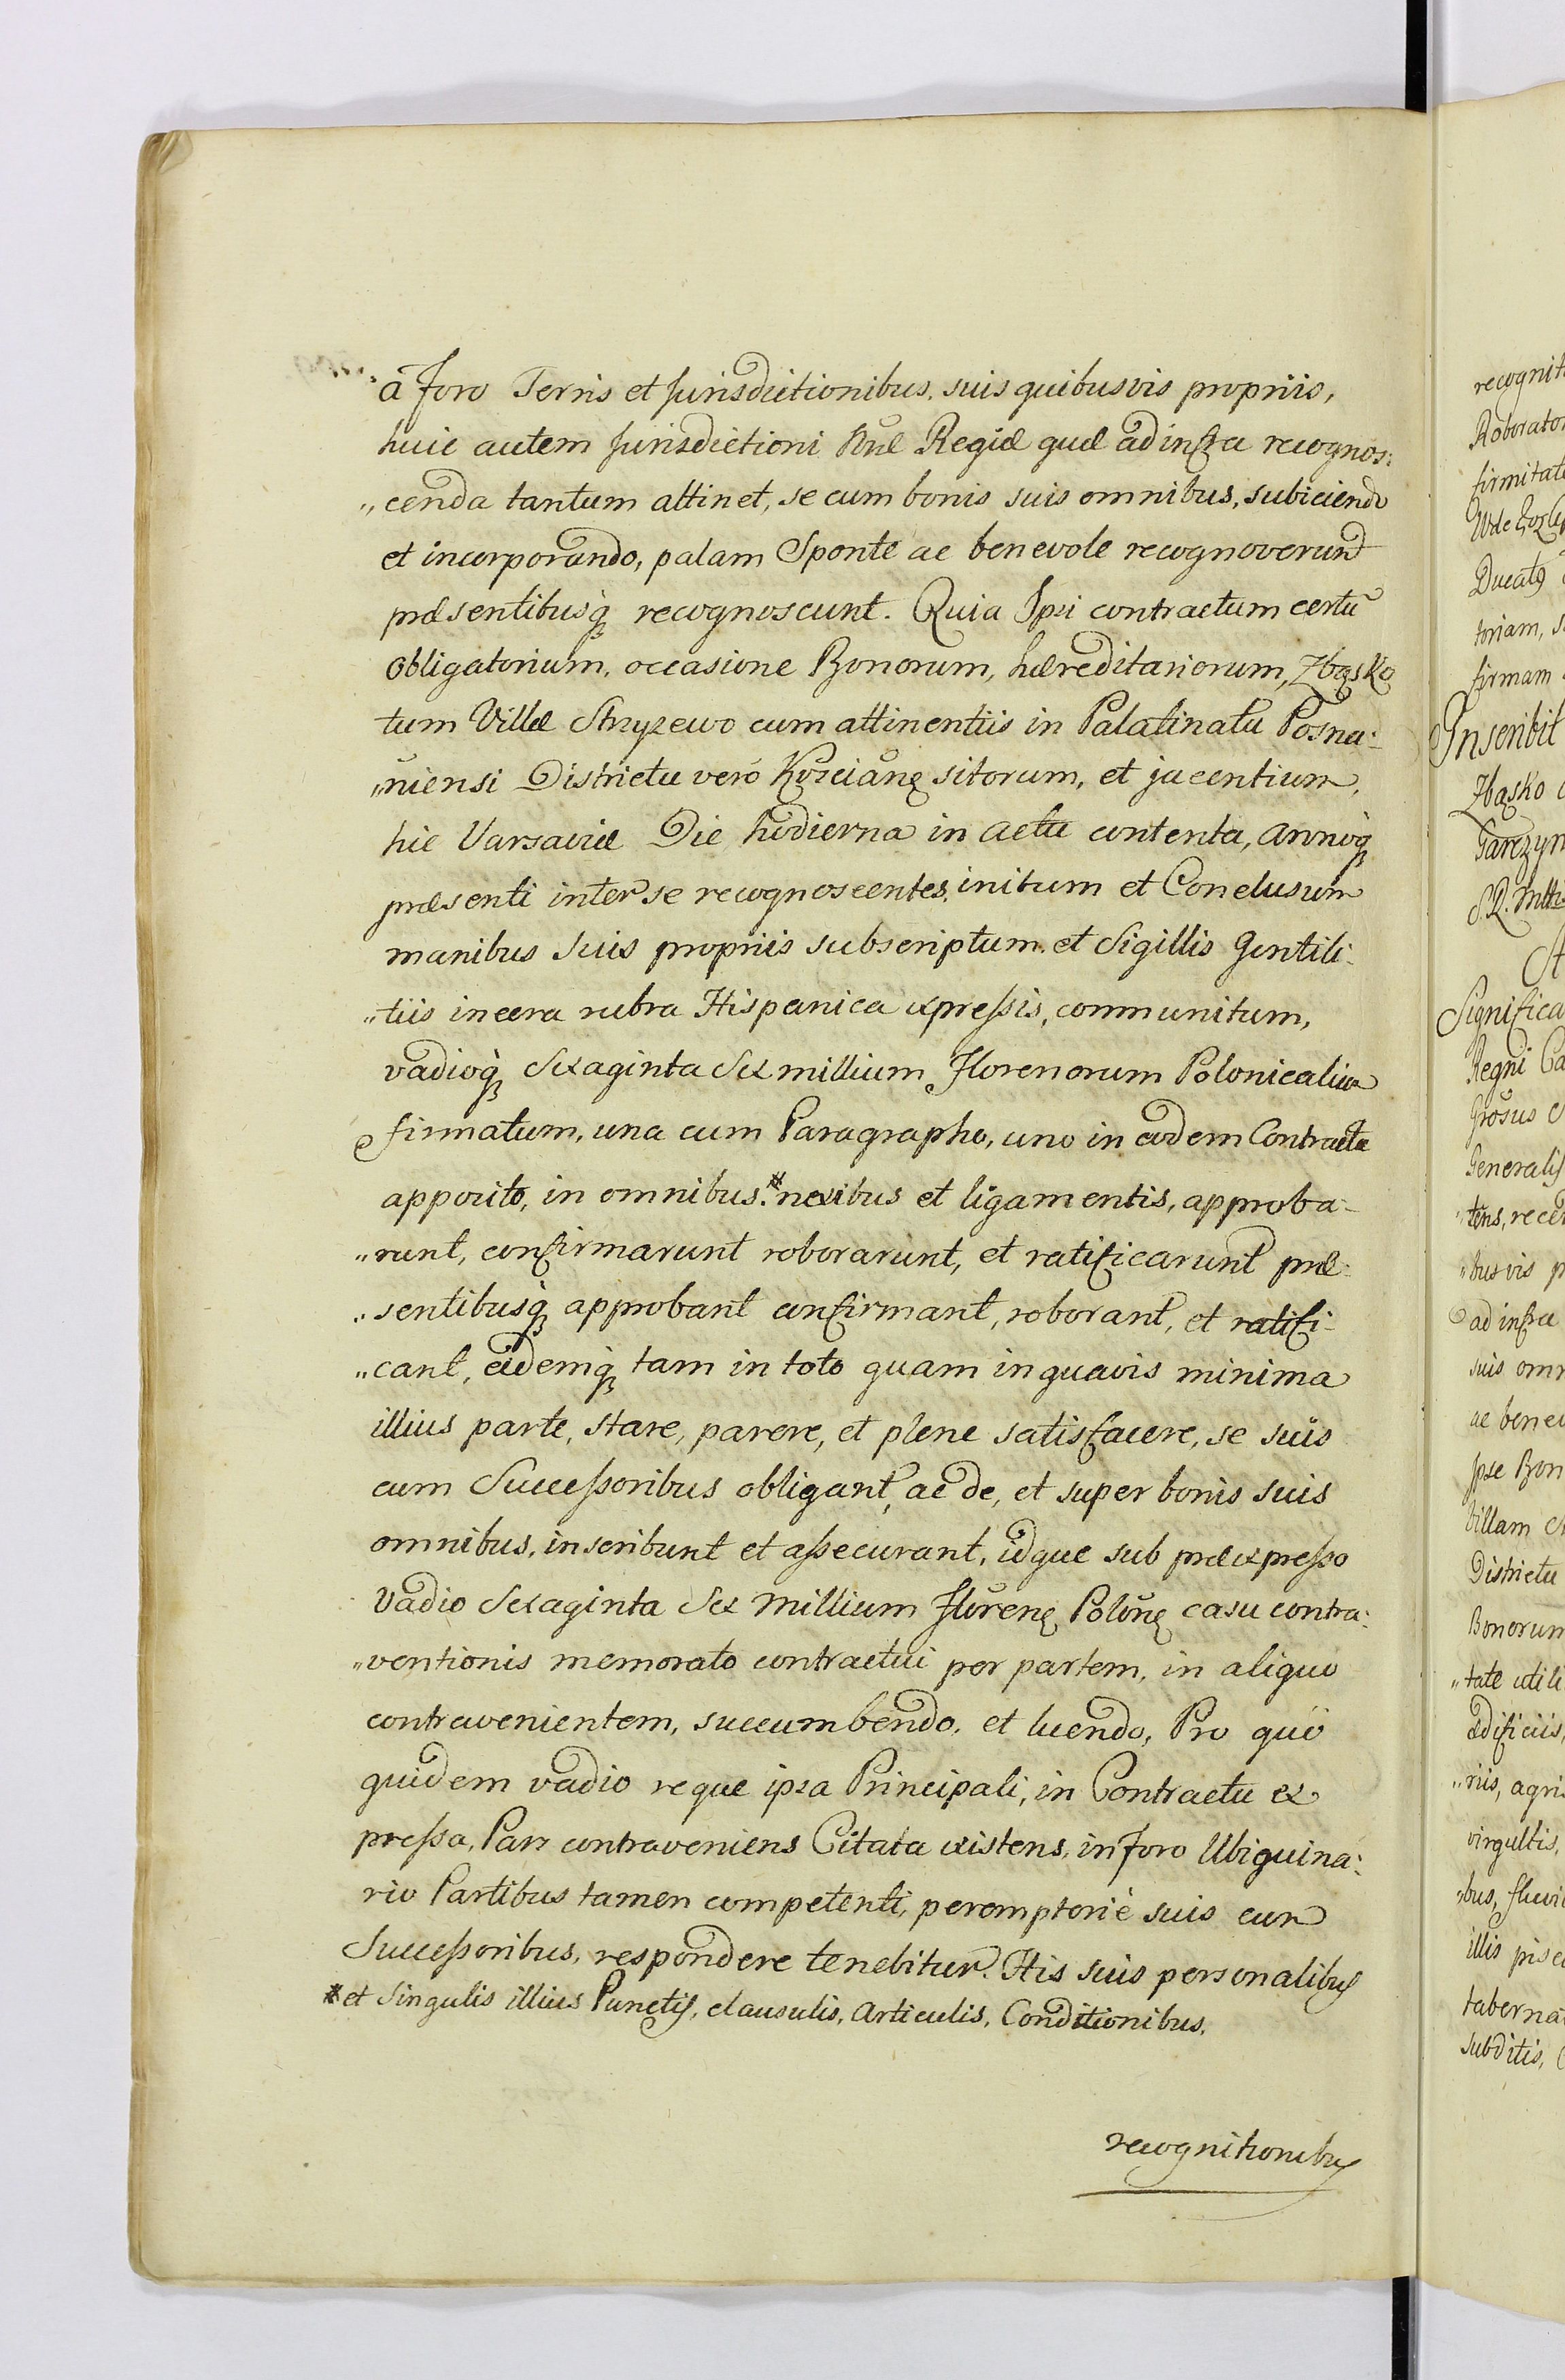 à Foro Terris et Jurisdictionibus, suis quibusvis propriis,
huic autem Jurisdictioni Regiæ quæ ad infra recognos:
„cenda tantum attinet, se cum bonis suis omnibus, subiciendo
et incorporando, palam Sponte ac benevole recognoverunt
præsentibusq́ꝫ recognoscunt. Quia Ipsi contractum certũ
obligatorium, occasione Bonorum, hæreditariorum, Zbąsko
tum Villæ Stryzewo cum attinentiis in Palatinatu Posna:
„niensi Districtu verò Kőscianę sitorum, et jacentium,
hic Varsaviæ Die hodierna in actu contenta, annoq́ꝫ
præsenti inter se recognoscentes, initum et Conclusum
manibus suis propriis subscriptum. et Sigillis Gentili:
„tiis in cera rubra Hispanica expressis, communitum,
vadioq́ꝫ Sexaginta Sex millium Florenorum Polonicaliũ
firmatum, una cum Paragrapho, uno in eodem Contractu
apposito, in omnibus.* nexibus et ligamentis, approba:
„runt, confirmarunt roborarunt, et ratificarunt præ:
„sentibusq́ꝫ approbant confirmant, roborant, et ratifi:
„cant, eidemq́ꝫ tam in toto quam in quavis minima
illius parte, stare, parere, et plene satisfacere, se suis
cum Successoribus obligant, ac de, et super bonis suis
omnibus, inscribunt et assecurant, idque sub præexpresso
Vadio Sexaginta Sex Millium Florenę Polonę casu contra:
„ventionis memorato contractui per partem, in aliquo
contravenientem, succumbendo, et luendo, Pro quo
quidem vadio reque ipsa Principali, in Contractu ex
pressa, Pars contraveniens Citata existens, in Foro Ubiquina:
rio Partibus tamen competenti, peremptoriè suis cum
Successoribus, respondere tenebitur. His suis personalibus
* et Singulis illius Punctis, clausulis, Articulis, Conditionibus,
recognitionibus
recognit
Roborator
firmitat
Ducatꝫ
toriam, s
firmam
Inscribit
Zbąsko
Garczyn
Significa
Regni Ca
Generalis
tens, recen
„busvis p
ad infra
suis omn
ac benev
Ipse Bon
Villam
Districtu
Bonorum
„tate utili
ædificiis,
„riis, agris
virgultis,
„bus, fluvi
illis pisc
taberna
subditis,